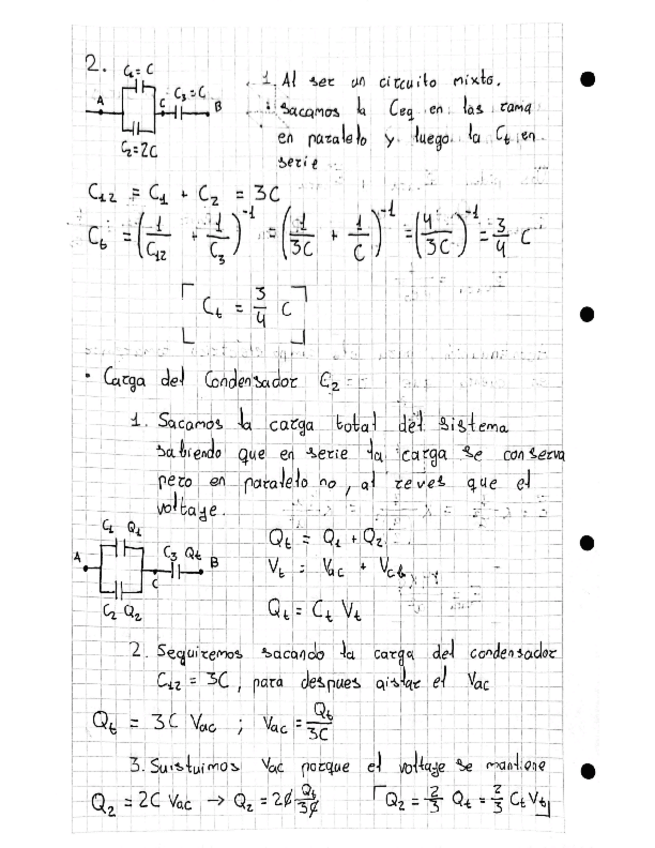 2.
C₁ = C
A
C
C₃ = C
B
C₂ = 2C
1. Al ser un circuito mixto.
sacamos la Ceq en las rama
en paralelo y luego la Ct en
serie
C₁₂ = C₁ + C₂ = 3C
Ct = (1/C₁₂ + 1/C₃)⁻¹ = (1/3C + 1/C)⁻¹ = (4/3C)⁻¹ = 3/4 C
[Ct = 3/4 C]
• Carga del Condensador C₂
1. Sacamos la carga total del sistema
sabiendo que en serie la carga se conserva
pero en paralelo no, al reves que el
voltage.
C₁ Q₁
A
C₃ Qt
B
C
C₂ Q₂
Qt = Q₁ + Q₂
Vt = Vac + Vcb
Qt = Ct Vt
2. Seguiremos sacando la carga del condensador
C₁₂ = 3C, para despues aislar el Vac
Qt = 3C Vac ; Vac = Qt/3C
3. Suistuimos Vac porque el voltage se mantione
Q₂ = 2C Vac → Q₂ = 2C Qt/3C [Q₂ = 2/3 Qt = 2/3 Ct Vt]